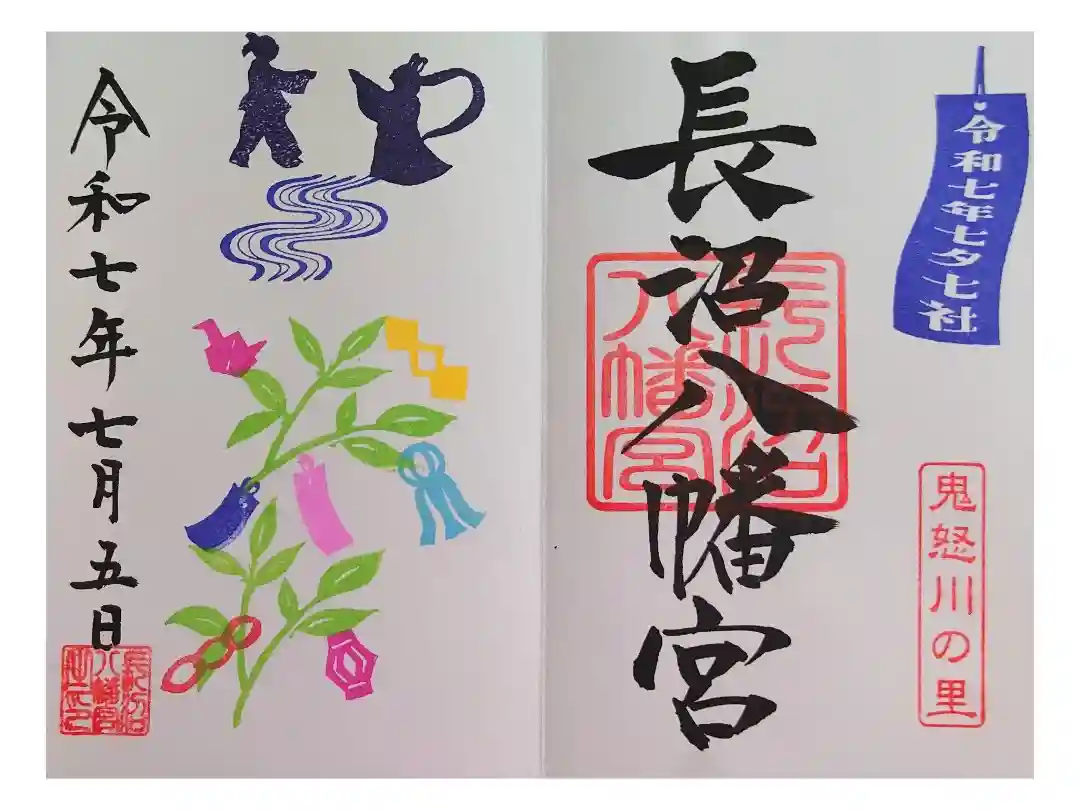 令和七年七夕七社
長沼八幡宮
長沼八幡宮
鬼怒川の里
令和七年七月五日
長沼八幡宮之印